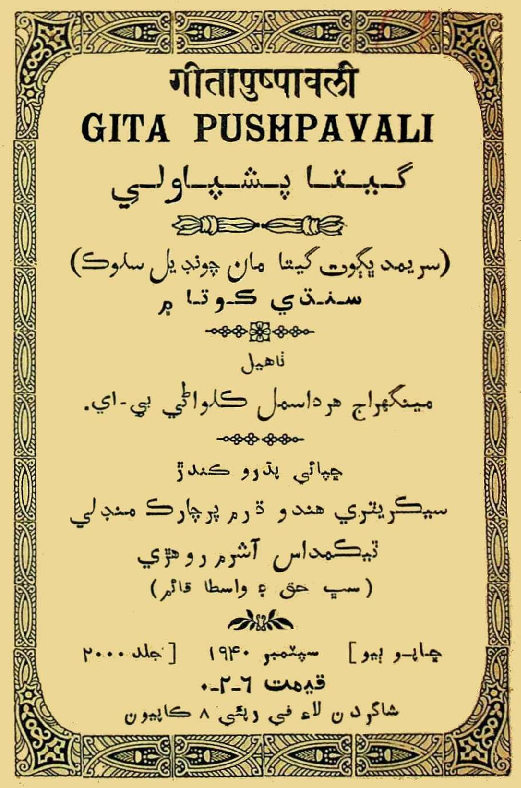 गीतापुष्पावली
GITA PUSHPAVALI
گيتا پشپاولي
(سريمد ڀڳوت گيتا مان چونڊيل سلوڪ)
سنڌي ڪوتا ۾
ٺاهيل
مينگهراج هرداسمل ڪلواڻي بي-اي.
ڇپائي پڌرو ڪندڙ
سيڪريٽري هندو ڌرم پرچارڪ منڊلي
ٽيڪمداس آشرم روهڙي
(سڀ حق ۽ واسطا قائم)
ڇاپو ٻيو] سپٽمبر ۱۹۴۰ [جلد ۲۰۰۰
قيمت ۶-۲-۰
شاگردن لاءِ في رپئي ۸ ڪاپيون